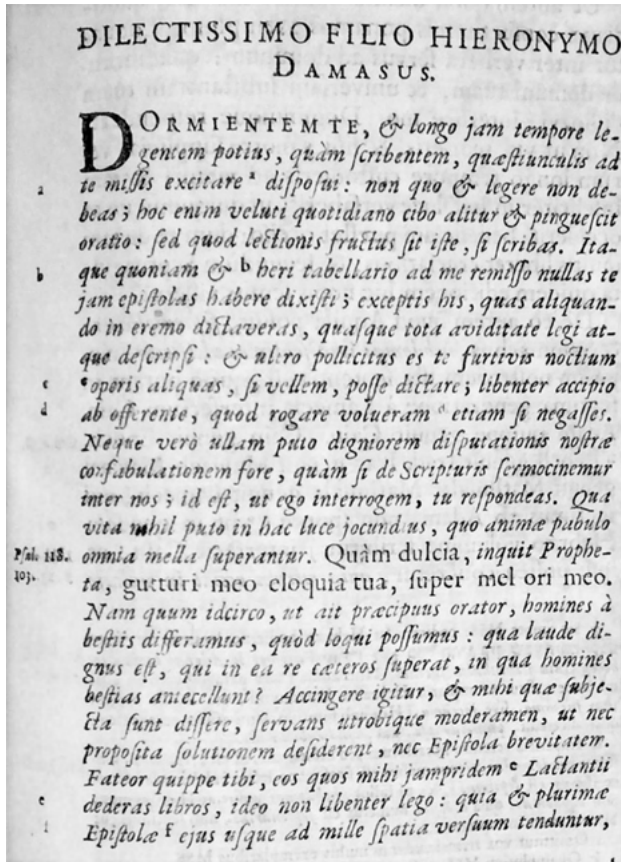 DILECTISSIMO FILIO HIERONYMO
DAMASUS.
DORMIENTEM TE, & longo jam tempore le-
gentem potius, quàm scribentem, quæstiunculis ad
a te missis excitare ª disposui: non quo & legere non de-
beas; hoc enim veluti quotidiano cibo alitur & pinguescit
oratio: sed quod lectionis fructus sit iste, si scribas. Ita-
b que quoniam & b heri tabellario ad me remisso nullas te
jam epistolas habere dixisti; exceptis his, quas aliquan-
do in eremo dictaveras, quasque tota aviditate legi at-
que descripsi: & ultro pollicitus es te furtivis noctium
c c operis aliquas, si vellem, posse dictare; libenter accipio
d ab offerente, quod rogare volueram etiam si negasses.
Neque verò ullam puto digniorem disputationis nostræ
confabulationem fore, quàm si de Scripturis sermocinemur
inter nos; id est, ut ego interrogem, tu respondeas. Qua
vita nihil puto in hac luce jocundius, quo animæ pabulo
Psal. 118. omnia mella superantur. Quàm dulcia, inquit Prophe-
103. ta, gutturi meo eloquia tua, super mel ori meo.
Nam quum idcirco, ut ait præcipuus orator, homines à
bestiis differamus, quòd loqui possumus: qua laude di-
gnus est, qui in ea re cæteros superat, in qua homines
bestias antecellunt? Accingere igitur, & mihi quæ subje-
cta sunt dissere, servans utrobique moderamen, ut nec
proposita solutionem desiderent, nec Epistola brevitatem.
Fateor quippe tibi, eos quos mihi jampridem e Lactantii
e dederas libros, ideo non libenter lego: quia & plurimæ
Epistolæ f ejus usque ad mille spatia versuum tenduntur,